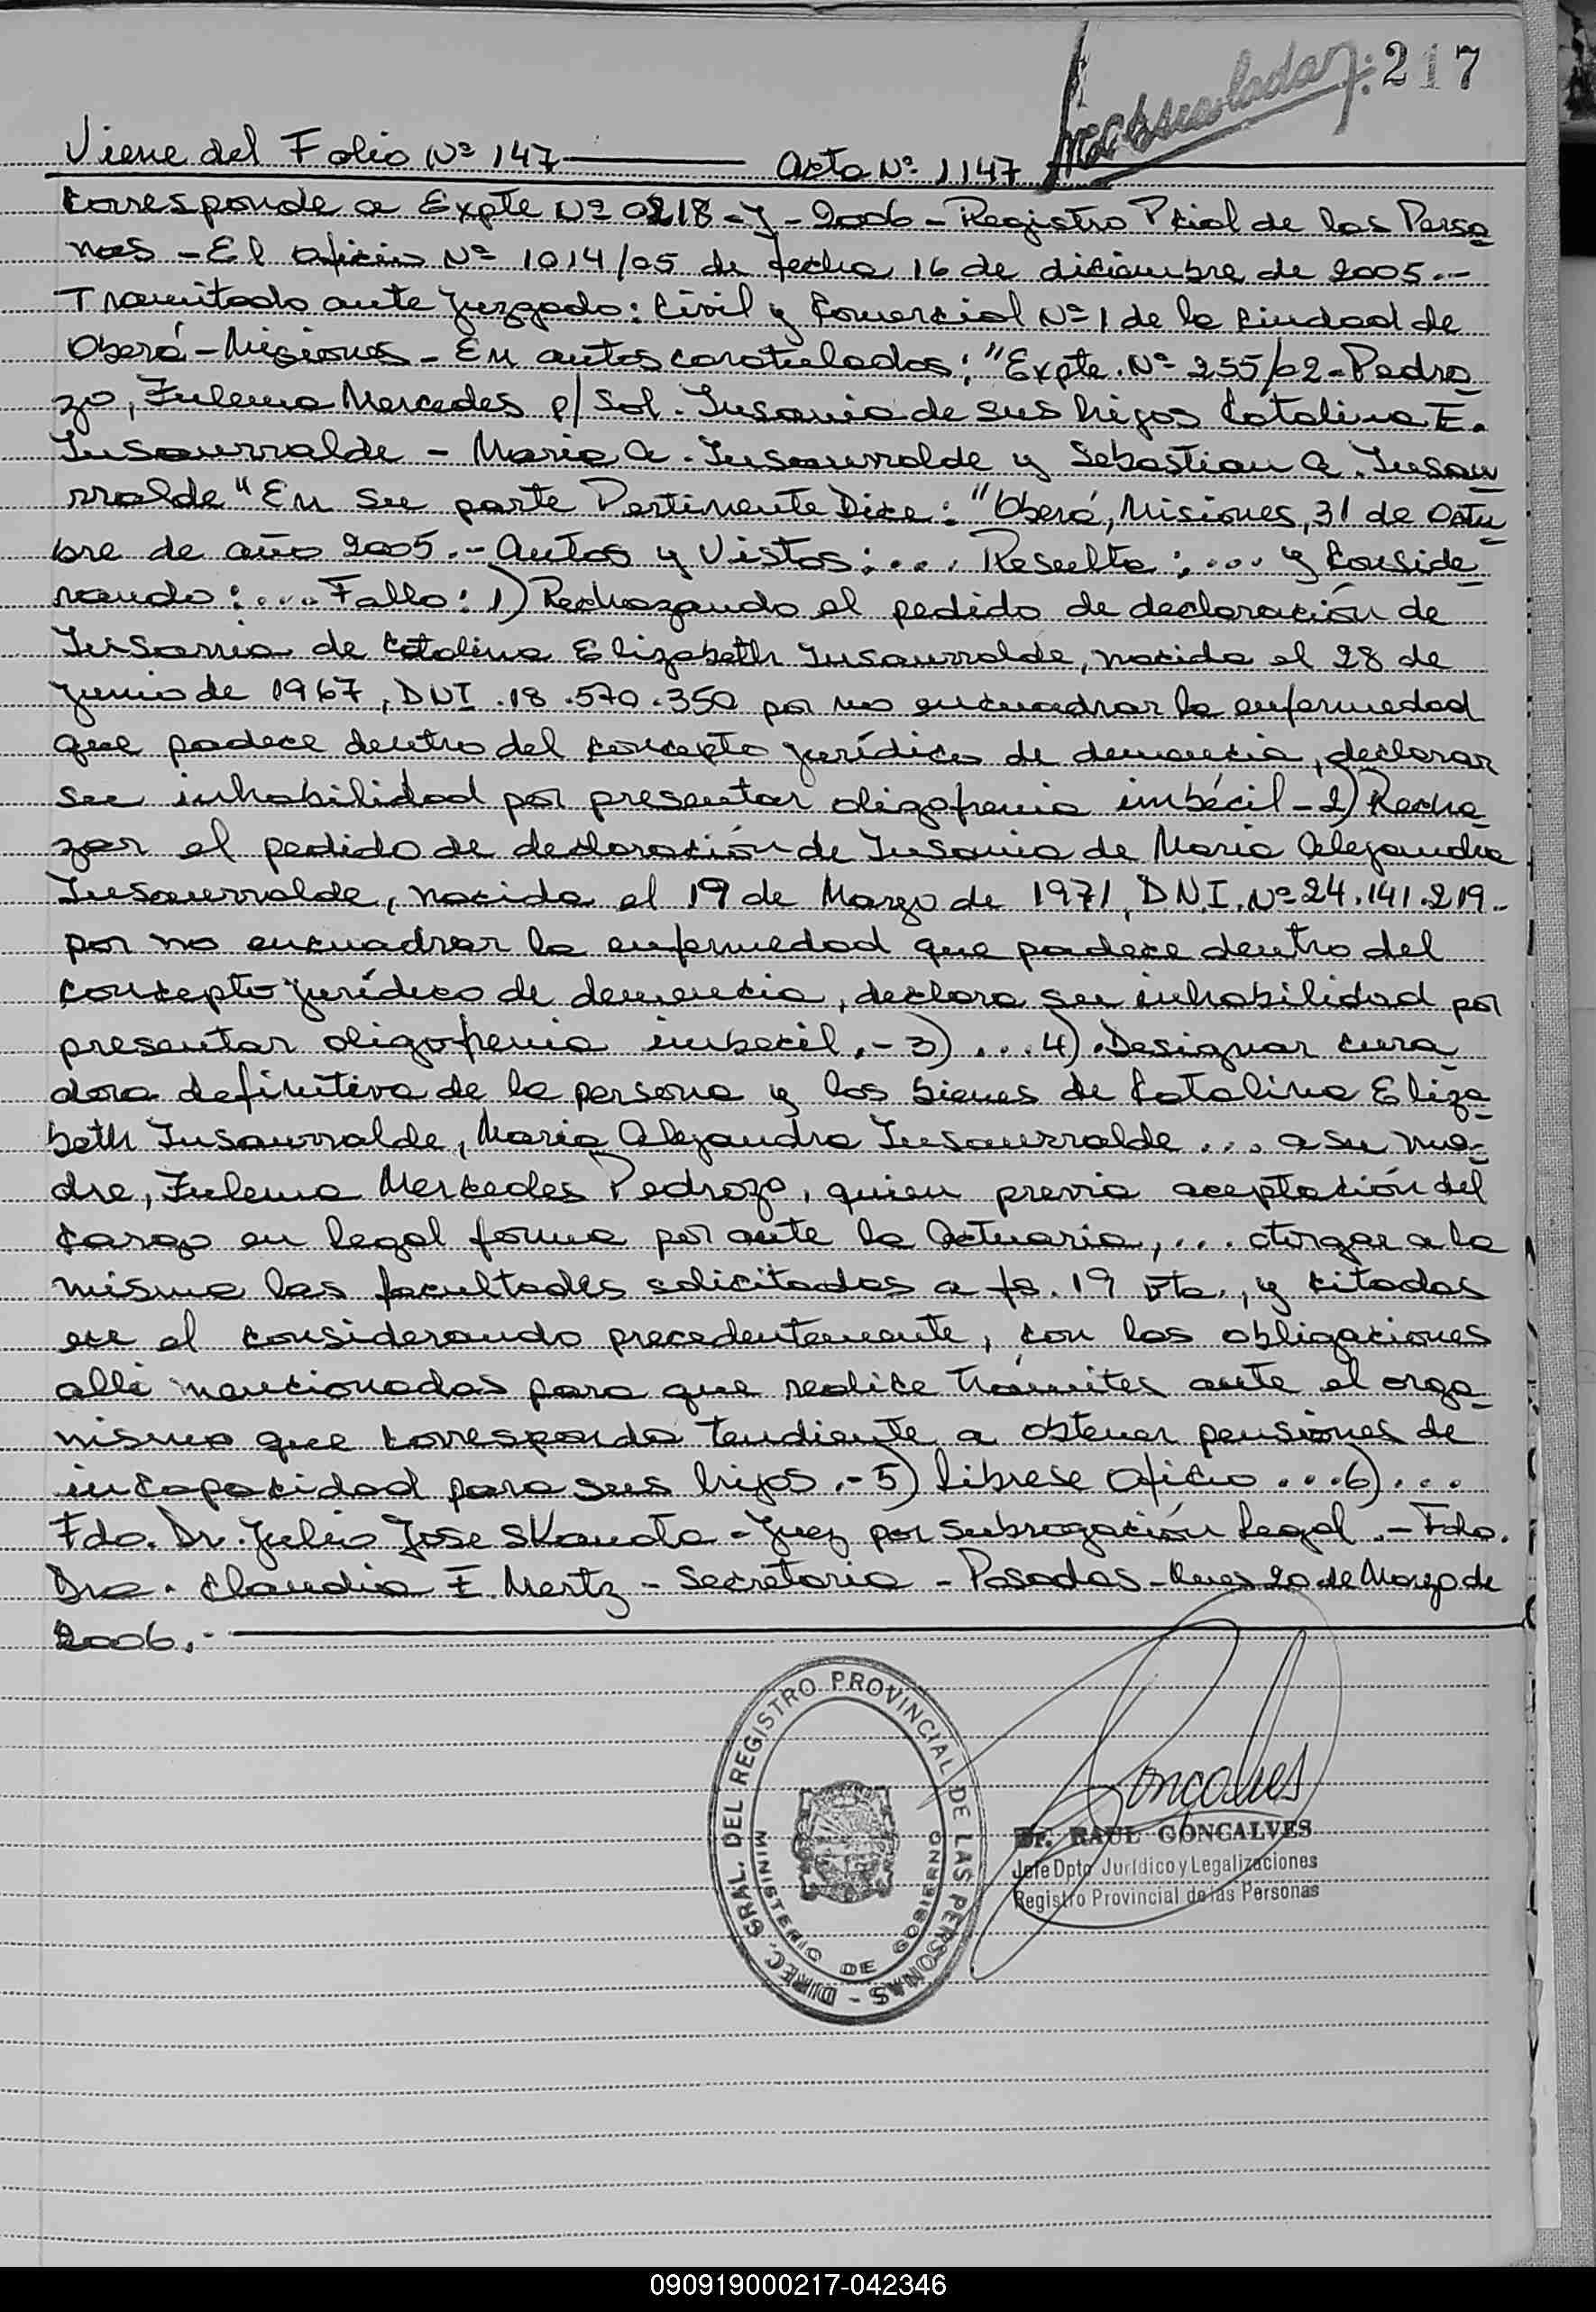 217
Viene del Folio Nº 147 Acta Nº 1147
Corresponde a Expte Nº 0218-J-2006-Registro Pcial de las Perso
nas - El oficio Nº 1014/05 de fecha 16 de diciembre de 2005.-
Tramitado ante Juzgado: Civil y Comercial Nº 1 de la Ciudad de
Oberá-Misiones- En autos caratulados: "Expte. Nº 255/02-Pedro
zo, Zulema Mercedes p/ Sol. Insania de sus hijos Catalina E.
Insaurralde - Maria A. Insaurralde y Sebastian A. Insau
rralde" En su parte Pertinente Dice: "Oberá, Misiones, 31 de Octu
bre de año 2005.- Autos y Vistos:... Resulta:... y Conside
rando:.... Fallo: 1) Rechazando el pedido de declaración de
Insania de Catalina Elizabeth Insaurralde, nacida el 28 de
Junio de 1967, DNI.18.570.350 por no encuadrar la enfermedad
que padece dentro del concepto jurídico de demencia, declarar
su inhabilidad por presentar oligofrenia imbécil-2) Recha
zar el pedido de declaración de Insania de Maria Alejandra
Insaurralde, nacida el 19 de Marzo de 1971, D.N.I. Nº 24.141.219.-
por no encuadrar la enfermedad que padece dentro del
concepto jurídico de demencia, declara su inhabilidad por
presentar oligofrenia imbecil.- 3)... 4). Designar cura
dora definitiva de la persona y los bienes de Catalina Eliza
beth Insaurralde, Maria Alejandra Insaurralde... a su ma
dre, Zulema Mercedes Pedrozo, quien previa aceptación del
cargo en legal forma por ante la Actuaria,... otorgar a la
misma las facultades solicitadas a fs. 19 vta., y citadas
en el considerando precedentemente, con las obligaciones
alli mencionadas para que realice trámites ante el orga
nismo que corresponda tendiente a obtener pensiones de
incapacidad para sus hijos.- 5) Líbrese oficio...6)...
Fdo. Dr. Julio Jose Skanata - Juez por Subrogación Legal.- Fdo.
Dra. Claudia E. Mertz - Secretaria - Posadas - Mnes 20 de Marzo de
2006.-
DIREC. GRAL. DEL REGISTRO PROVINCIAL DE LAS PERSONAS -
MINISTERIO DE GOBIERNO
Goncalves
Dr. RAUL GONCALVES
Jefe Dpto Jurídico y Legalizaciones
Registro Provincial de las Personas
090919000217-042346